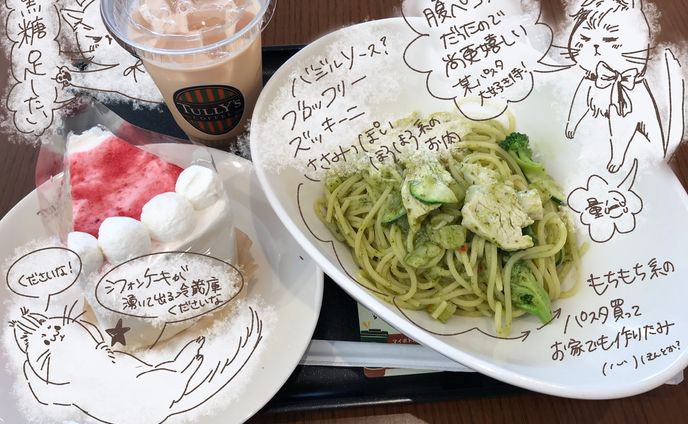 黒糖
足したい
TULLY'S
COFFEE
バジルソース?
ブロッコリー
ズッキーニ
ささみっぽい
ほろほろ系の
お肉
腹ペコ
だったので
尚更嬉しい
パスタ
大好き侍!
量
もちもち系の
パスタ買って
お家でも作りたみ
ほんとか?
くださいな!
シフォンケーキが
湧いて出る冷蔵庫
くださいな